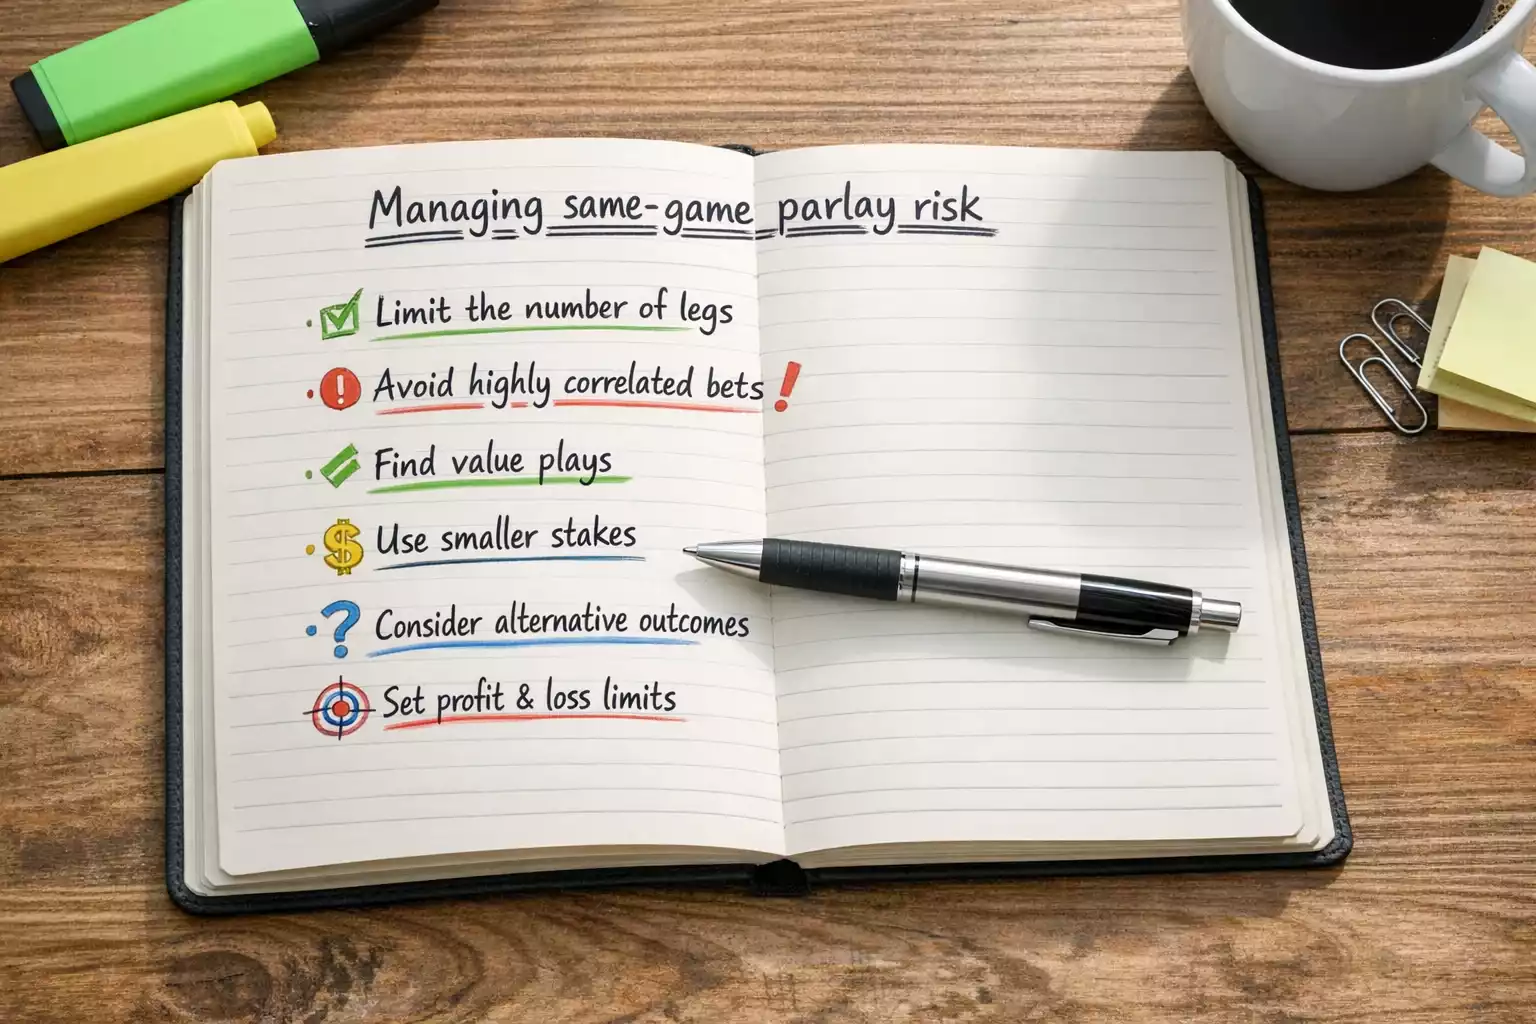 Managing same-game parlay risk
Limit the number of legs
Avoid highly correlated bets!
Find value plays
Use smaller stakes
Consider alternative outcomes
Set profit & loss limits